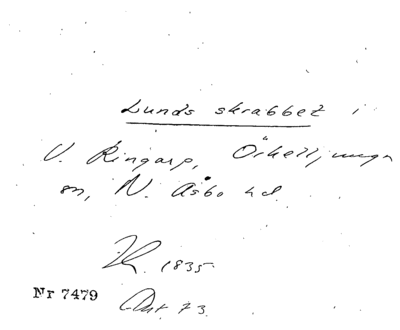 Lunds skrabbet i
V. Ringarp, Örkelljunga
sn, N. Åsbo hd.
1835
Nr 7479 Okt 73.